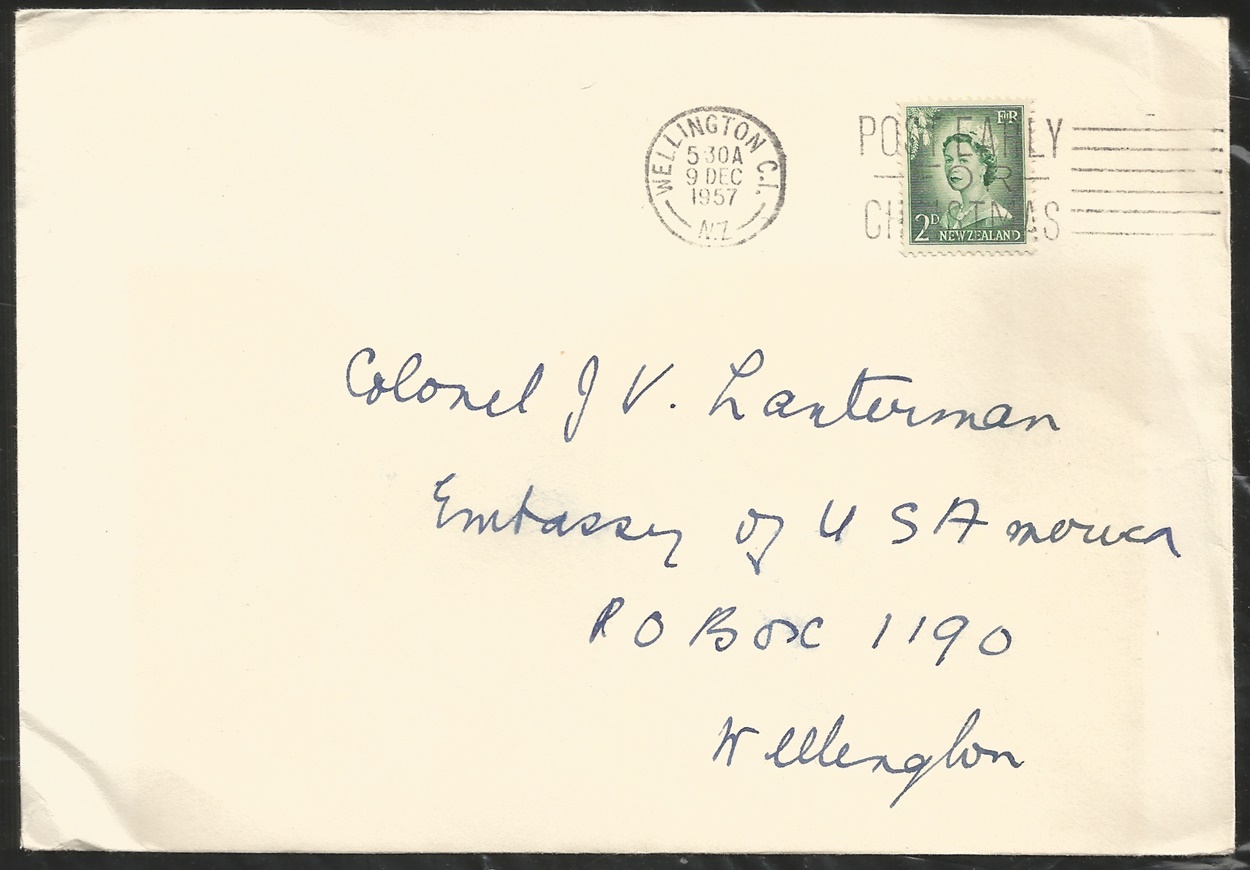 WELLINGTON C.1.
5 30A
9 DEC
1957
N.Z
POST EARLY
FOR
CHRISTMAS
E II R
2D NEW ZEALAND
Colonel J V. Lanterman
Embassy of U S America
P O Box 1190
Wellington